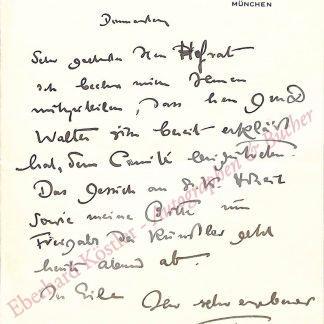 MÜNCHEN
Donnerstag
Sehr geehrter Herr Hofrat
ich beehre mich Ihnen
mitzuteilen, dass Herr Gen
Walter sich bereit erklärt
hat, dem Comité beizutreten.
Das Gesuch an S. K. Hoheit
sowie meine Bitte um
Freigabe der Künstler geht
heute Abend ab.
In Eile Ihr sehr ergebener
Eberhard Köstler - Autographen & Bücher